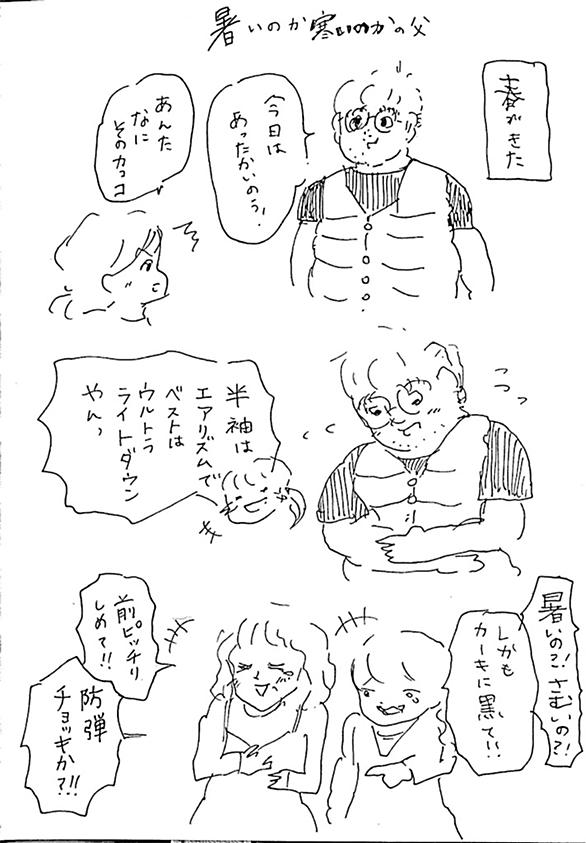 暑いのか寒いのかの父
春がきた
今日は
あったかいのう!
あんた
なに
そのカッコ
半袖は
エアリズムで
ベストは
ウルトラ
ライトダウン
やんっ
暑いの?!さむいの?!
しかも
カーキに黒て!!
前ピッチリ
しめて!!
防弾
チョッキか?!!